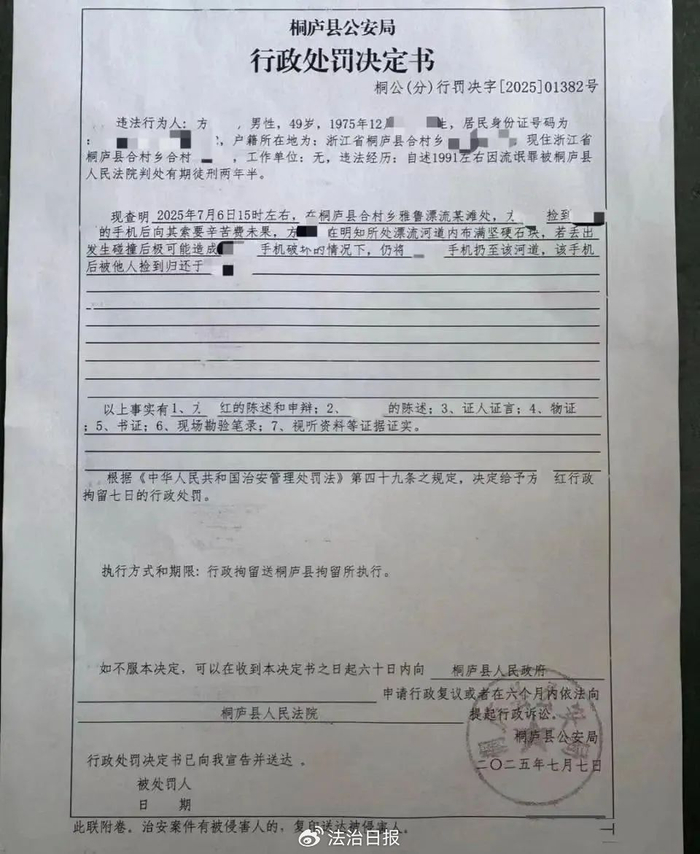 桐庐县公安局
行政处罚决定书
桐公(分)行罚决字[2025]01382号
违法行为人：方 ，男性，49岁，1975年12月 生，居民身份证号码为
： ，户籍所在地为：浙江省桐庐县合村乡 ，现住浙江省
桐庐县合村乡合村 ，工作单位：无，违法经历：自述1991左右因流氓罪被桐庐县
人民法院判处有期徒刑两年半。
现查明 2025年7月6日15时左右，在桐庐县合村乡雅鲁漂流某滩处，方 捡到
的手机后向其索要辛苦费未果，方 在明知所处漂流河道内布满坚硬石块，若丢出
发生碰撞后极可能造成 手机破坏的情况下，仍将 手机扔至该河道，该手机
后被他人捡到归还于
以上事实有1、方 红的陈述和申辩；2、 的陈述；3、证人证言；4、物证
；5、书证；6、现场勘验笔录；7、视听资料等证据证实。
根据《中华人民共和国治安管理处罚法》第四十九条之规定，决定给予方 红行政
拘留七日的行政处罚。
执行方式和期限：行政拘留送桐庐县拘留所执行。
如不服本决定，可以在收到本决定书之日起六十日内向 桐庐县人民政府
申请行政复议或者在六个月内依法向
桐庐县人民法院 提起行政诉讼。
桐庐县公安局
二〇二五年七月七日
行政处罚决定书已向我宣告并送达 。
被处罚人
日 期
此联附卷。治安案件有被侵害人的，复印送达被侵害人。
法治日报